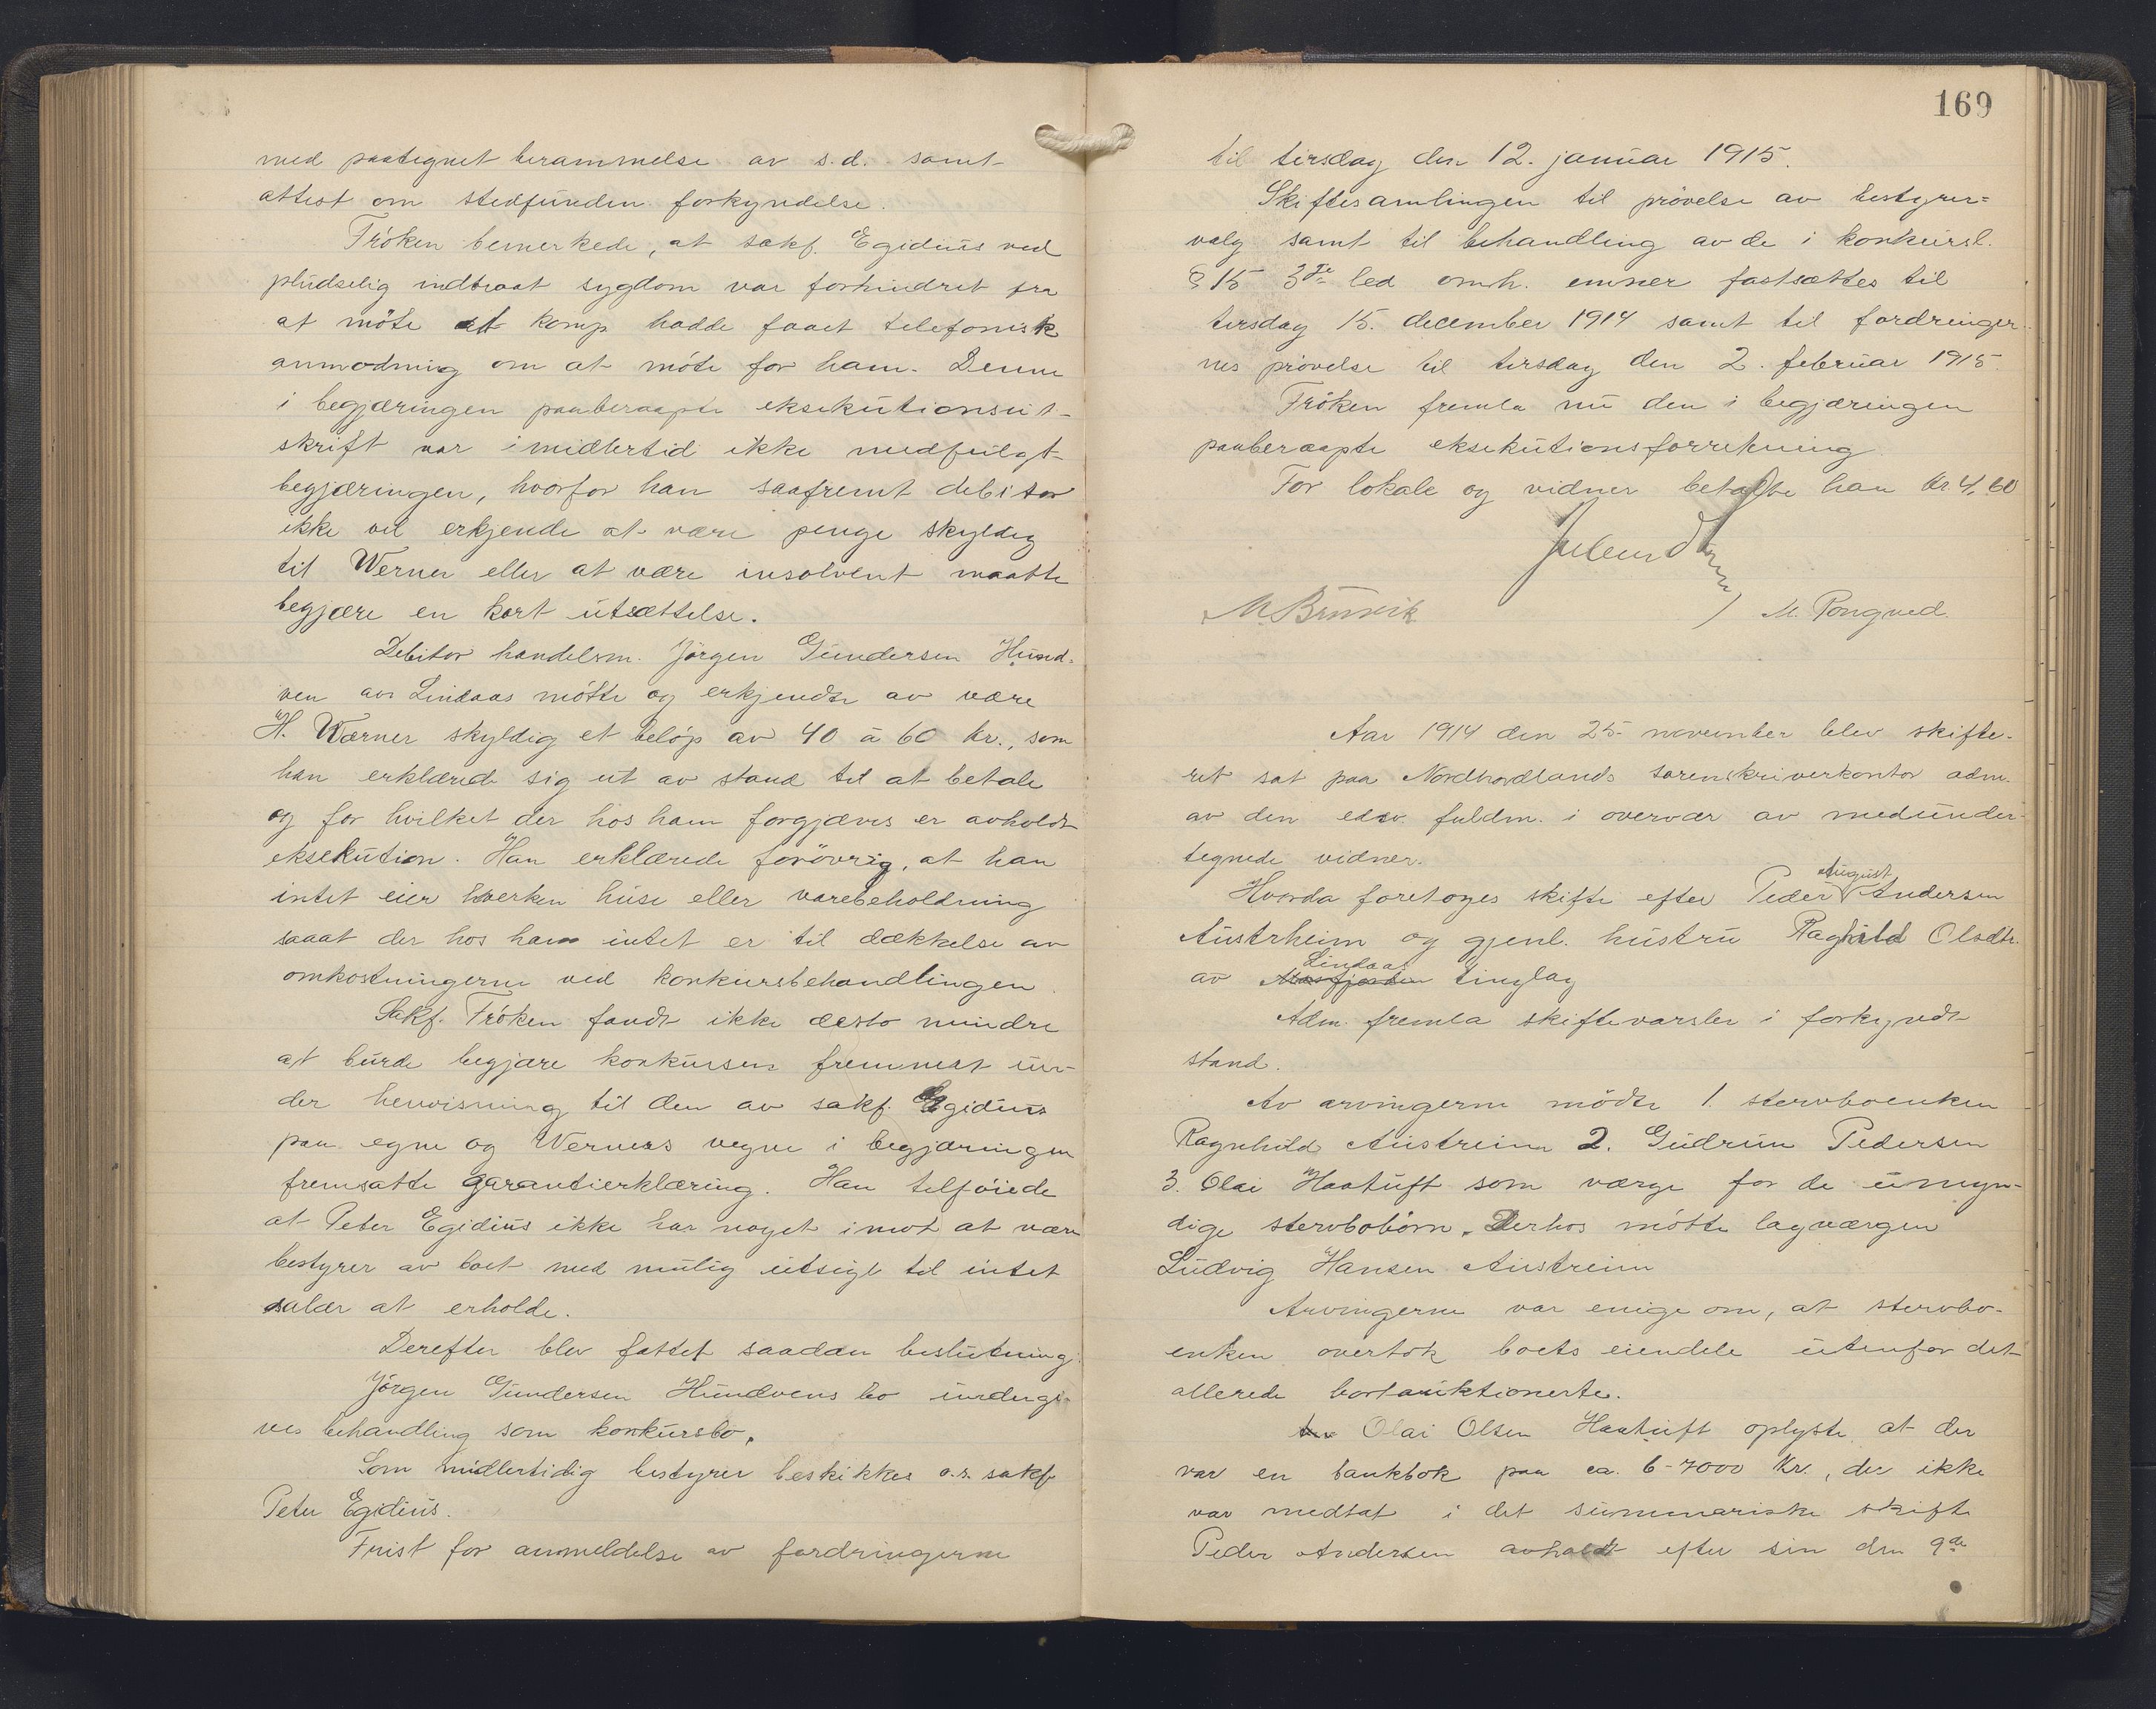 med paategnet berammelse av s.d. samt
attest om stedfunden forkyndelse.
Fröken bemerkede, at sakf. Egidius ved
pludselig indtraat sygdom var forhindret fra
at möte at komp hadde faaet telefonisk
anmodning om at möte for ham. Denne
i begjæringen paaberaapte eksekutionsut-
skrift var imidlertid ikke medfulgt
begjæringen, hvorfor han saafremt debitor
ikke vil erkjende at være penge skyldig
til Werner eller at være insolvent maatte
begjære en kort utsættelse.
Debitor handelsm. Jörgen Gundersen Hund-
ven av Lindaas mötte og erkjendte av være
H. Wærner skyldig et belöp av 40 à 60 kr., som
han erklærede sig ut av stand til at betale
og for hvilket der hos ham forgjæves er avholdt
eksekution. Han erklærede forövrig, at han
intet eier hverken huse eller varebeholdning
saaat der hos ham intet er til dækkelse av
omkostningerne ved konkursbehandlingen.
Sakf. Fröken fandt ikke desto mindre
at burde begjære konkursen fremmet un-
der henvisning til den av sakf. Egidius
paa egne og Werners vegne i begjæringen
fremsatte garantierklæring. Han tilföiede
at Peter Egidius ikke har noget imot at være
bestyrer av boet med mulig utsigt til intet
salær at erholde.
Derefter blev fattet saadan beslutning:
Jörgen Gundersen Hundvens bo undergi-
ves behandling som konkursbo.
Som midlertidig bestyrer beskikkes o.r. sakf.
Peter Egidius.
Frist for anmeldelse av fordringerne
169
til tirsdag den 12. januar 1915.
Skiftesamlingen til prövelse av bestyrer=
valg samt til behandling av de i konkursl.
§ 15 3die led omh. emner fastsættes til
tirsdag 15. december 1914 samt til fordringer-
nes prövelse til tirsdag den 2. februar 1915.
Fröken fremla nu den i begjæringen
paaberaapte eksekutionsforretning.
For lokale og vidner betalte han kr. 4,60
M. Brunvik / M. Rongved.
Aar 1914 den 25. november blev skifte-
ret sat paa Nordhordlands sorenskriverkontor adm.
av den edsv. fuldm. i overvær av medunder-
tegnede vidner.
Hvorda foretoges skifte efter Peder August Andersen
Austrheim og gjenl. hustru Raghild Olsdtr.
av Masfjorden Lindaas tinglag
Adm. fremla skiftevarsler i forkyndt
stand.
Av arvingerne mödte 1. stervboenken
Ragnhild Austreim 2. Gudrun Pedersen
3. Olai Haatuft som værge for de umyn-
dige stervbobörn. Derhos mötte lagværgen
Ludvig Hansen Austreim
Arvingerne var enige om, at stervbo-
enken overtok boets eiendele utenfor det
allerede bortauktionerte.
Olai Olsen Haatuft oplyste at der
var en bankbok paa ca. 6-7000 Kr., der ikke
var medtat i det summariske skifte
Peder Andersen avholdt efter sin den 9de